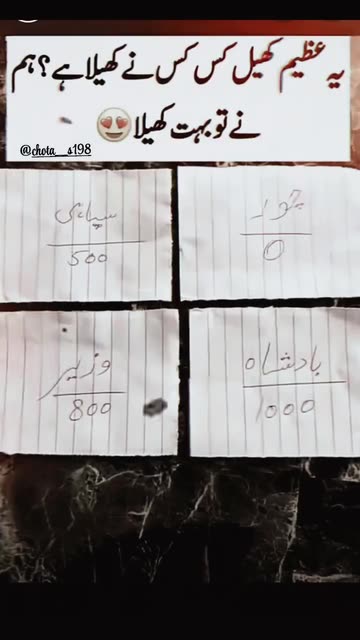 یہ عظیم کھیل کس کس نے کھیلا ہے؟ ہم
نے تو بہت کھیلا😍
@chota__s198
چور
0
سپاہی
500
بادشاہ
1000
وزیر
800